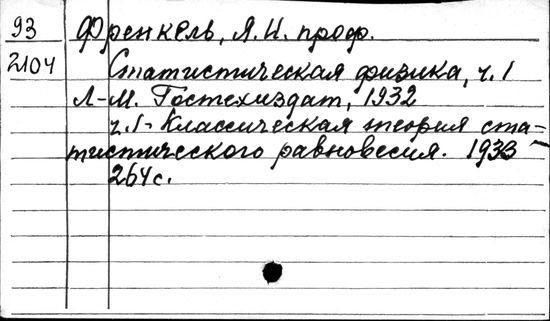 93 Френкель, Я.И. проф.
2104 Статистическая физика, ч. 1
Л-М. Гостехиздат, 1932
ч.1- Классическая теория ста-
тистического равновесия. 1933
264с.